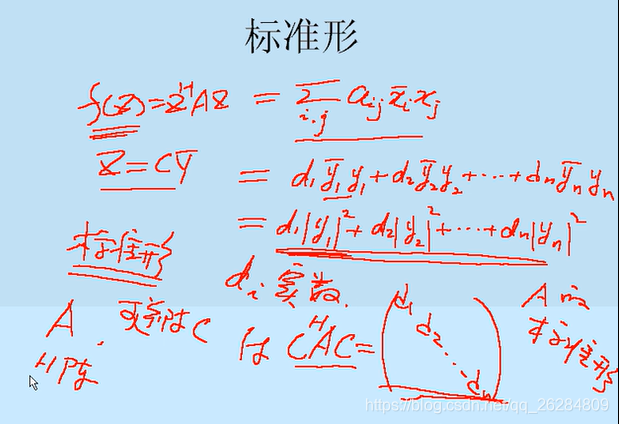 标准形
f(x)=x^H A x = Σ_{i,j} a_{ij} x̄_i x_j
x = Cy = d_1 ȳ_1 y_1 + d_2 ȳ_2 y_2 + ··· + d_n ȳ_n y_n
= d_1|y_1|^2 + d_2|y_2|^2 + ··· + d_n|y_n|^2
标准形
d_i 实数.
A H阵, 可逆阵C 使 C^H A C = (d_1 d_2 ··· d_n) A的标准形
https://blog.csdn.net/qq_26284809